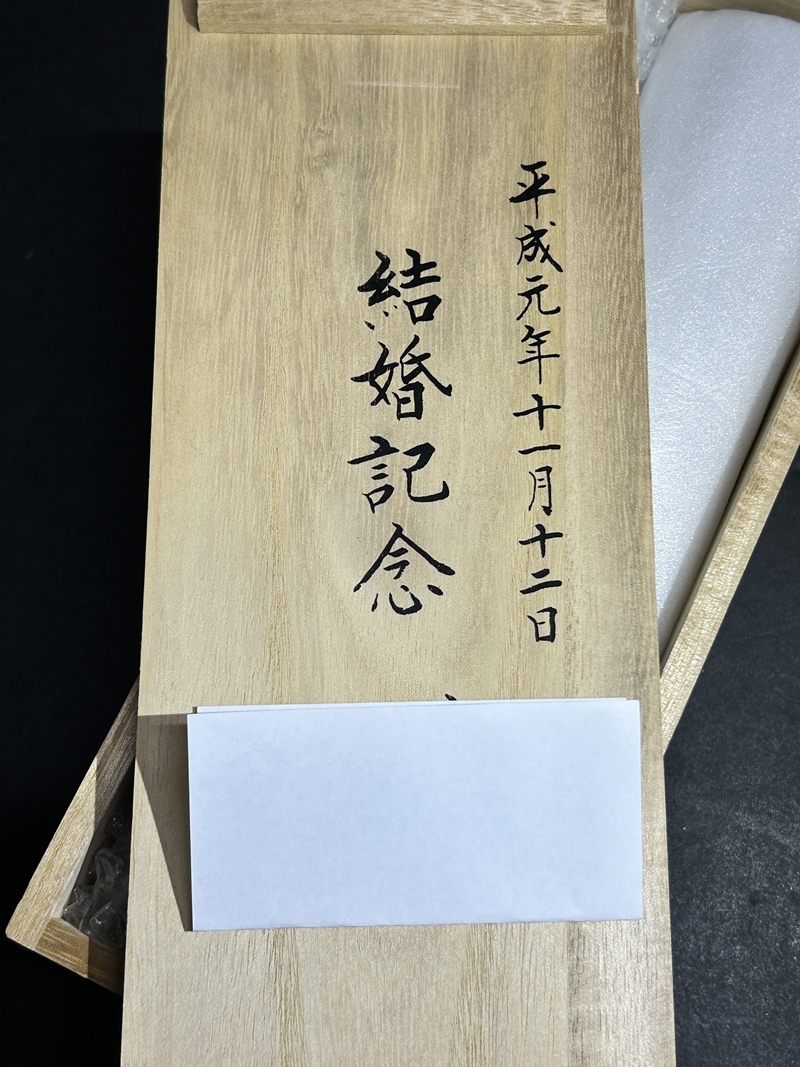 平成元年十一月十二日
結婚記念